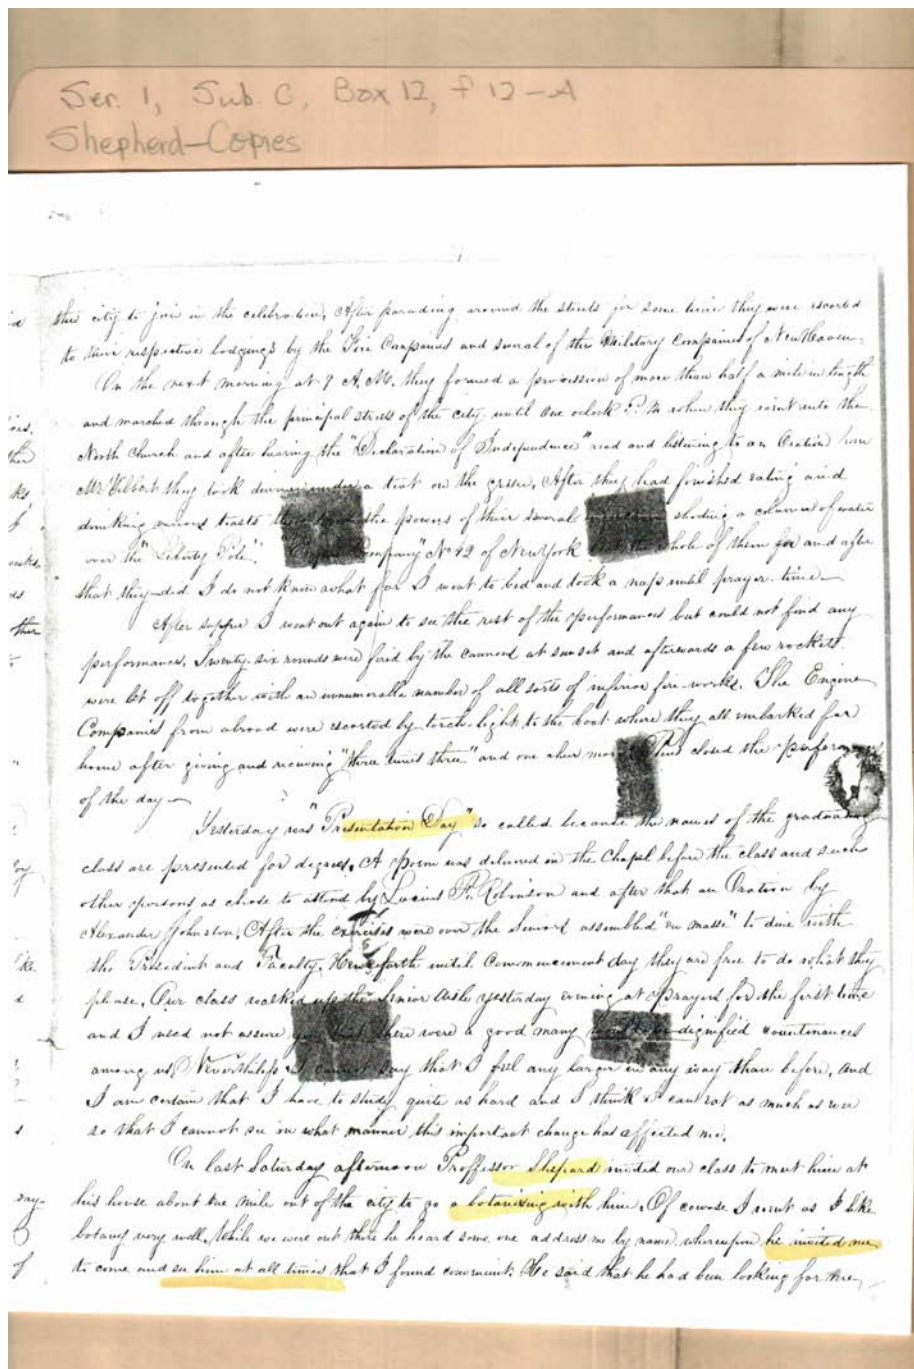 Ser. 1, Sub. C, Box 12, f 12-A
Shepherd-Copies
this city to join in the celebration. After parading around the streets for some time they were escorted
to their respective lodgings by the Fire Companies and several of the Military Companies of New Haven.
On the next morning at 9 A.M. they formed a procession of more than half a mile in length
and marched through the principal streets of the city until one oclock P. M when they went into the
North Church and after hearing the "Declaration of Independence" read and listening to an Oration from
Mr. they took dinner under a tent on the green. After they had finished eating and
drinking various toasts the powers of their several shooting a column of water
over the "Liberty Pole". Company" No 42 of New York the whole of them for and after
that they did I do not know what for I went to bed and took a nap until prayer-time.
After supper I went out again to see the rest of the performances but could not find any
performance. Twenty-six rounds were fired by the cannon at sunset and afterwards a few rockets
were let off together with an innumerable number of all sorts of inferior fire-works. The Engine
Companies from abroad were escorted by torch-light to the boat where they all embarked for
home after giving and receiving "three times three" and one cheer more. Thus closed the perform
of the day—
Yesterday was "Presentation Day" so called because the names of the graduating
class are presented for degrees. A Poem was delivered in the Chapel before the class and such
other persons as chose to attend by Lucius F. Robinson and after that an Oration by
Alexander Johnston. After the exercises were over the Seniors assembled "en masse" to dine with
the President and Faculty. Henceforth until Commencement day they are free to do what they
please. Our class walked up the Senior Aisle yesterday evening at prayers for the first time
and I need not assure you that there were a good many dignified countenances
among us. Nevertheless I cannot say that I feel any larger in any way than before, and
I am certain that I have to study quite as hard and I think I can eat as much as ever
so that I cannot see in what manner this important change has affected me.
On last Saturday afternoon Proffessor Shepard invited our class to meet him at
his house about one mile out of the city to go a botanising with him. Of course I went as I like
botany very well. While we were out there he heard some one address me by name whereupon he invited me
to come and see him at all times that I found convenient. He said that he had been looking for me